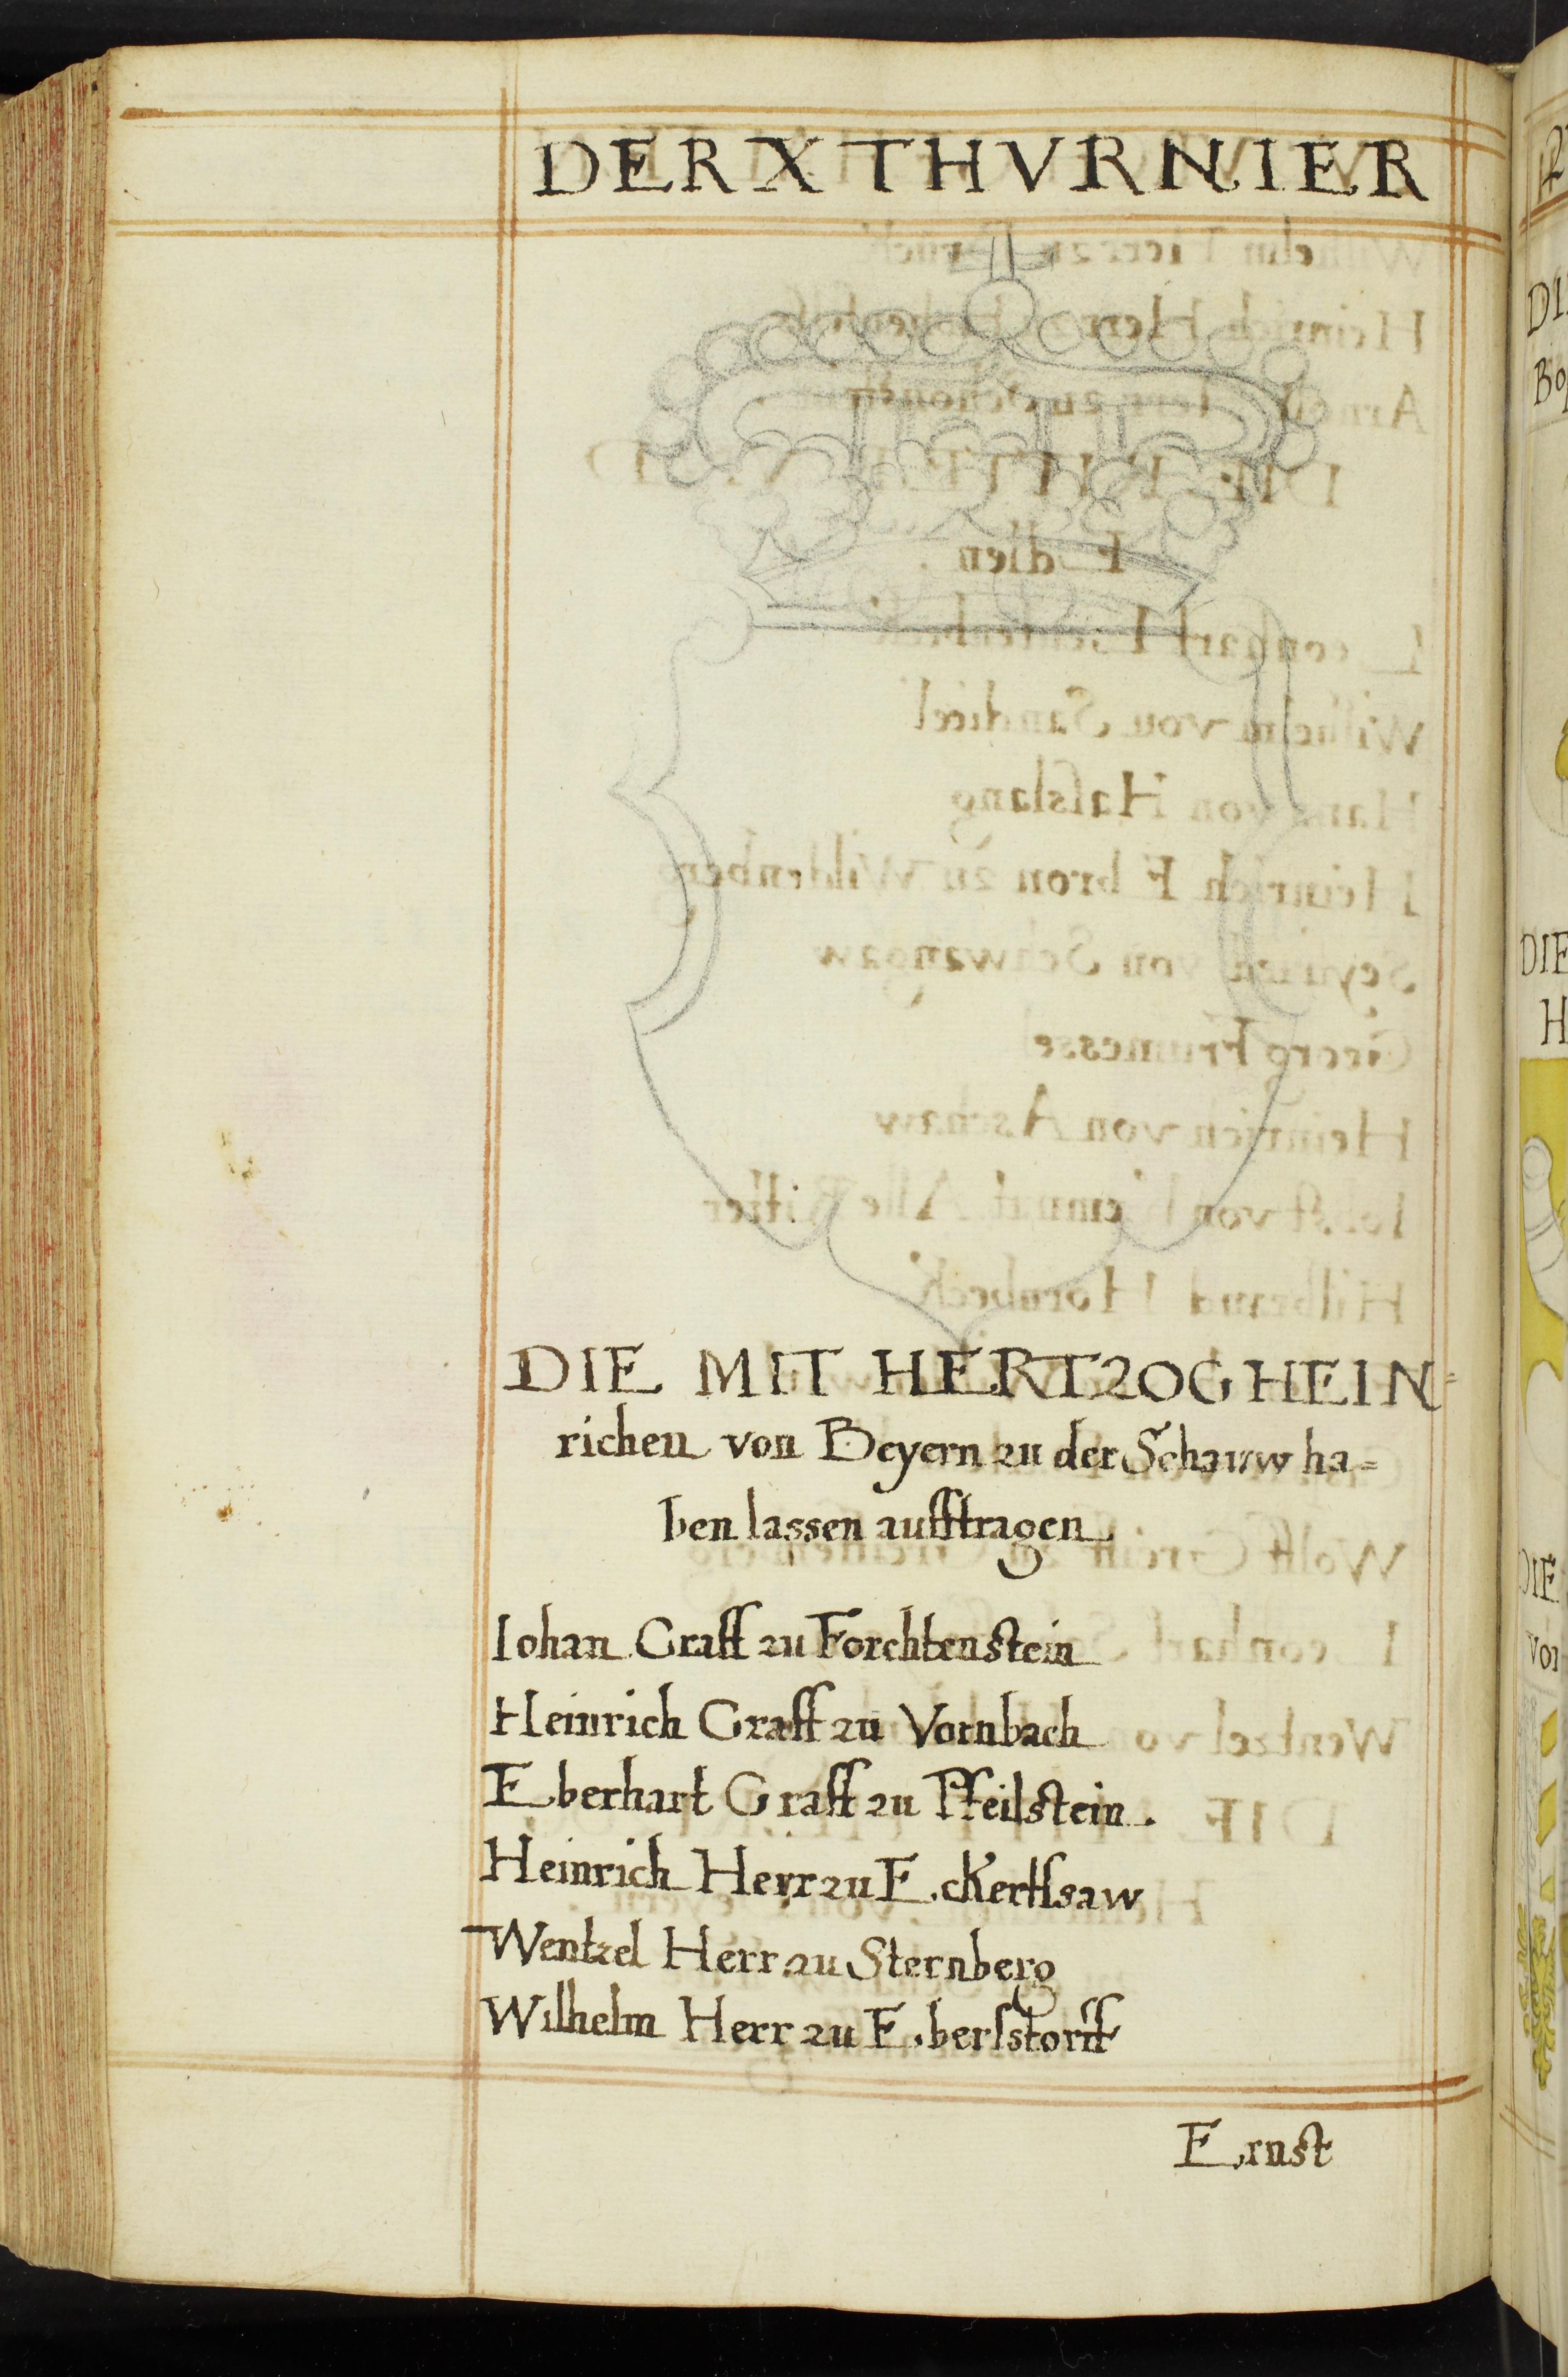 DER X THVRNIER
DIE MIT HERTZOG HEIN=
richen von Beyern zu der Schauw ha=
ben lassen aufftragen
Iohan Graff zu Forchtenstein
Heinrich Graff zu Vornbach
Eberhart Graff zu Pfeilstein.
Heinrich Herr zu Eckertſsaw
Wentzel Herr zu Sternberg
Wilhelm Herr zu Eberſstorff
Ernst